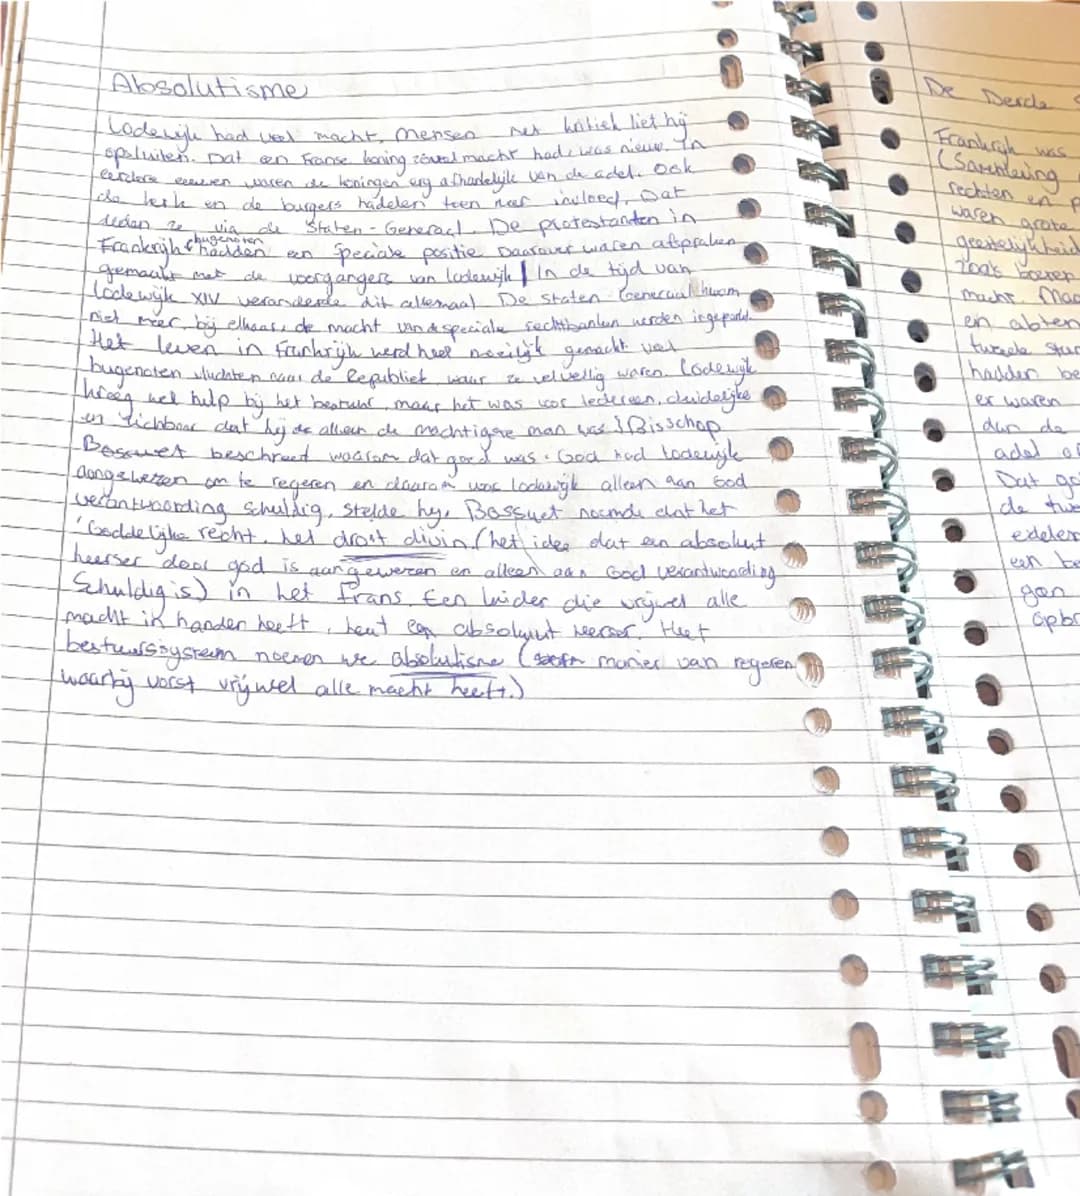 Absolutisme
Lodewijk had veel macht. Mensen met kritiek liet hij
opsluiten. Dat een Franse koning zoveel macht had, was nieuw. In
eerdere eeuwen waren de koningen erg afhankelijk van de adel. Ook
de kerk en de burgers hadden toen meer invloed. Dat
deden ze via de Staten-Generaal. De protestanten in
Frankrijk (hugenoten hadden een speciale positie. Daarover waren afspraken
gemaakt met de voorgangers van Lodewijk | In de tijd van
Lodewijk XIV veranderde dit allemaal. De Staten-Generaal kwam
niet meer bij elkaar, de macht van de speciale rechtbanken werden ingeperkt.
Het leven in Frankrijk werd heel moeilijk gemaakt veel
hugenoten vluchten naar de Republiek, waar ze welveilig waren. Lodewijk
kreeg wel hulp bij het bestuur, maar het was voor iedereen duidelijke
en zichtbaar dat hij de alleen de machtigste man was } Bisschop
Bossuet beschreef waarom dat goed was. God had Lodewijk
aangewezen om te regeren en daarom was Lodewijk alleen aan God
verantwoording schuldig, stelde hij. Bossuet noemde dat het
'Goddelijke recht, het droit divin (het idee dat een absoluut
heerser door god is aangewezen en alleen aan God verantwoording
Schuldig is) in het Frans. Een leider die vrijwel alle
macht in handen heeft, heet een absoluut heerser. Het
bestuurssysteem noemen we absolutisme (manier van regeren
waarbij vorst vrijwel alle macht heeft.)
De Derde
Frankrijk was
(Samenleving
rechten en p
waren grote
geestelijkheid
zoals boeren
macht. Maa
en abten
tweede stan
hadden be
er waren
dan de
adel of
Dat go
de twe
edelen
een be
gen
opbr